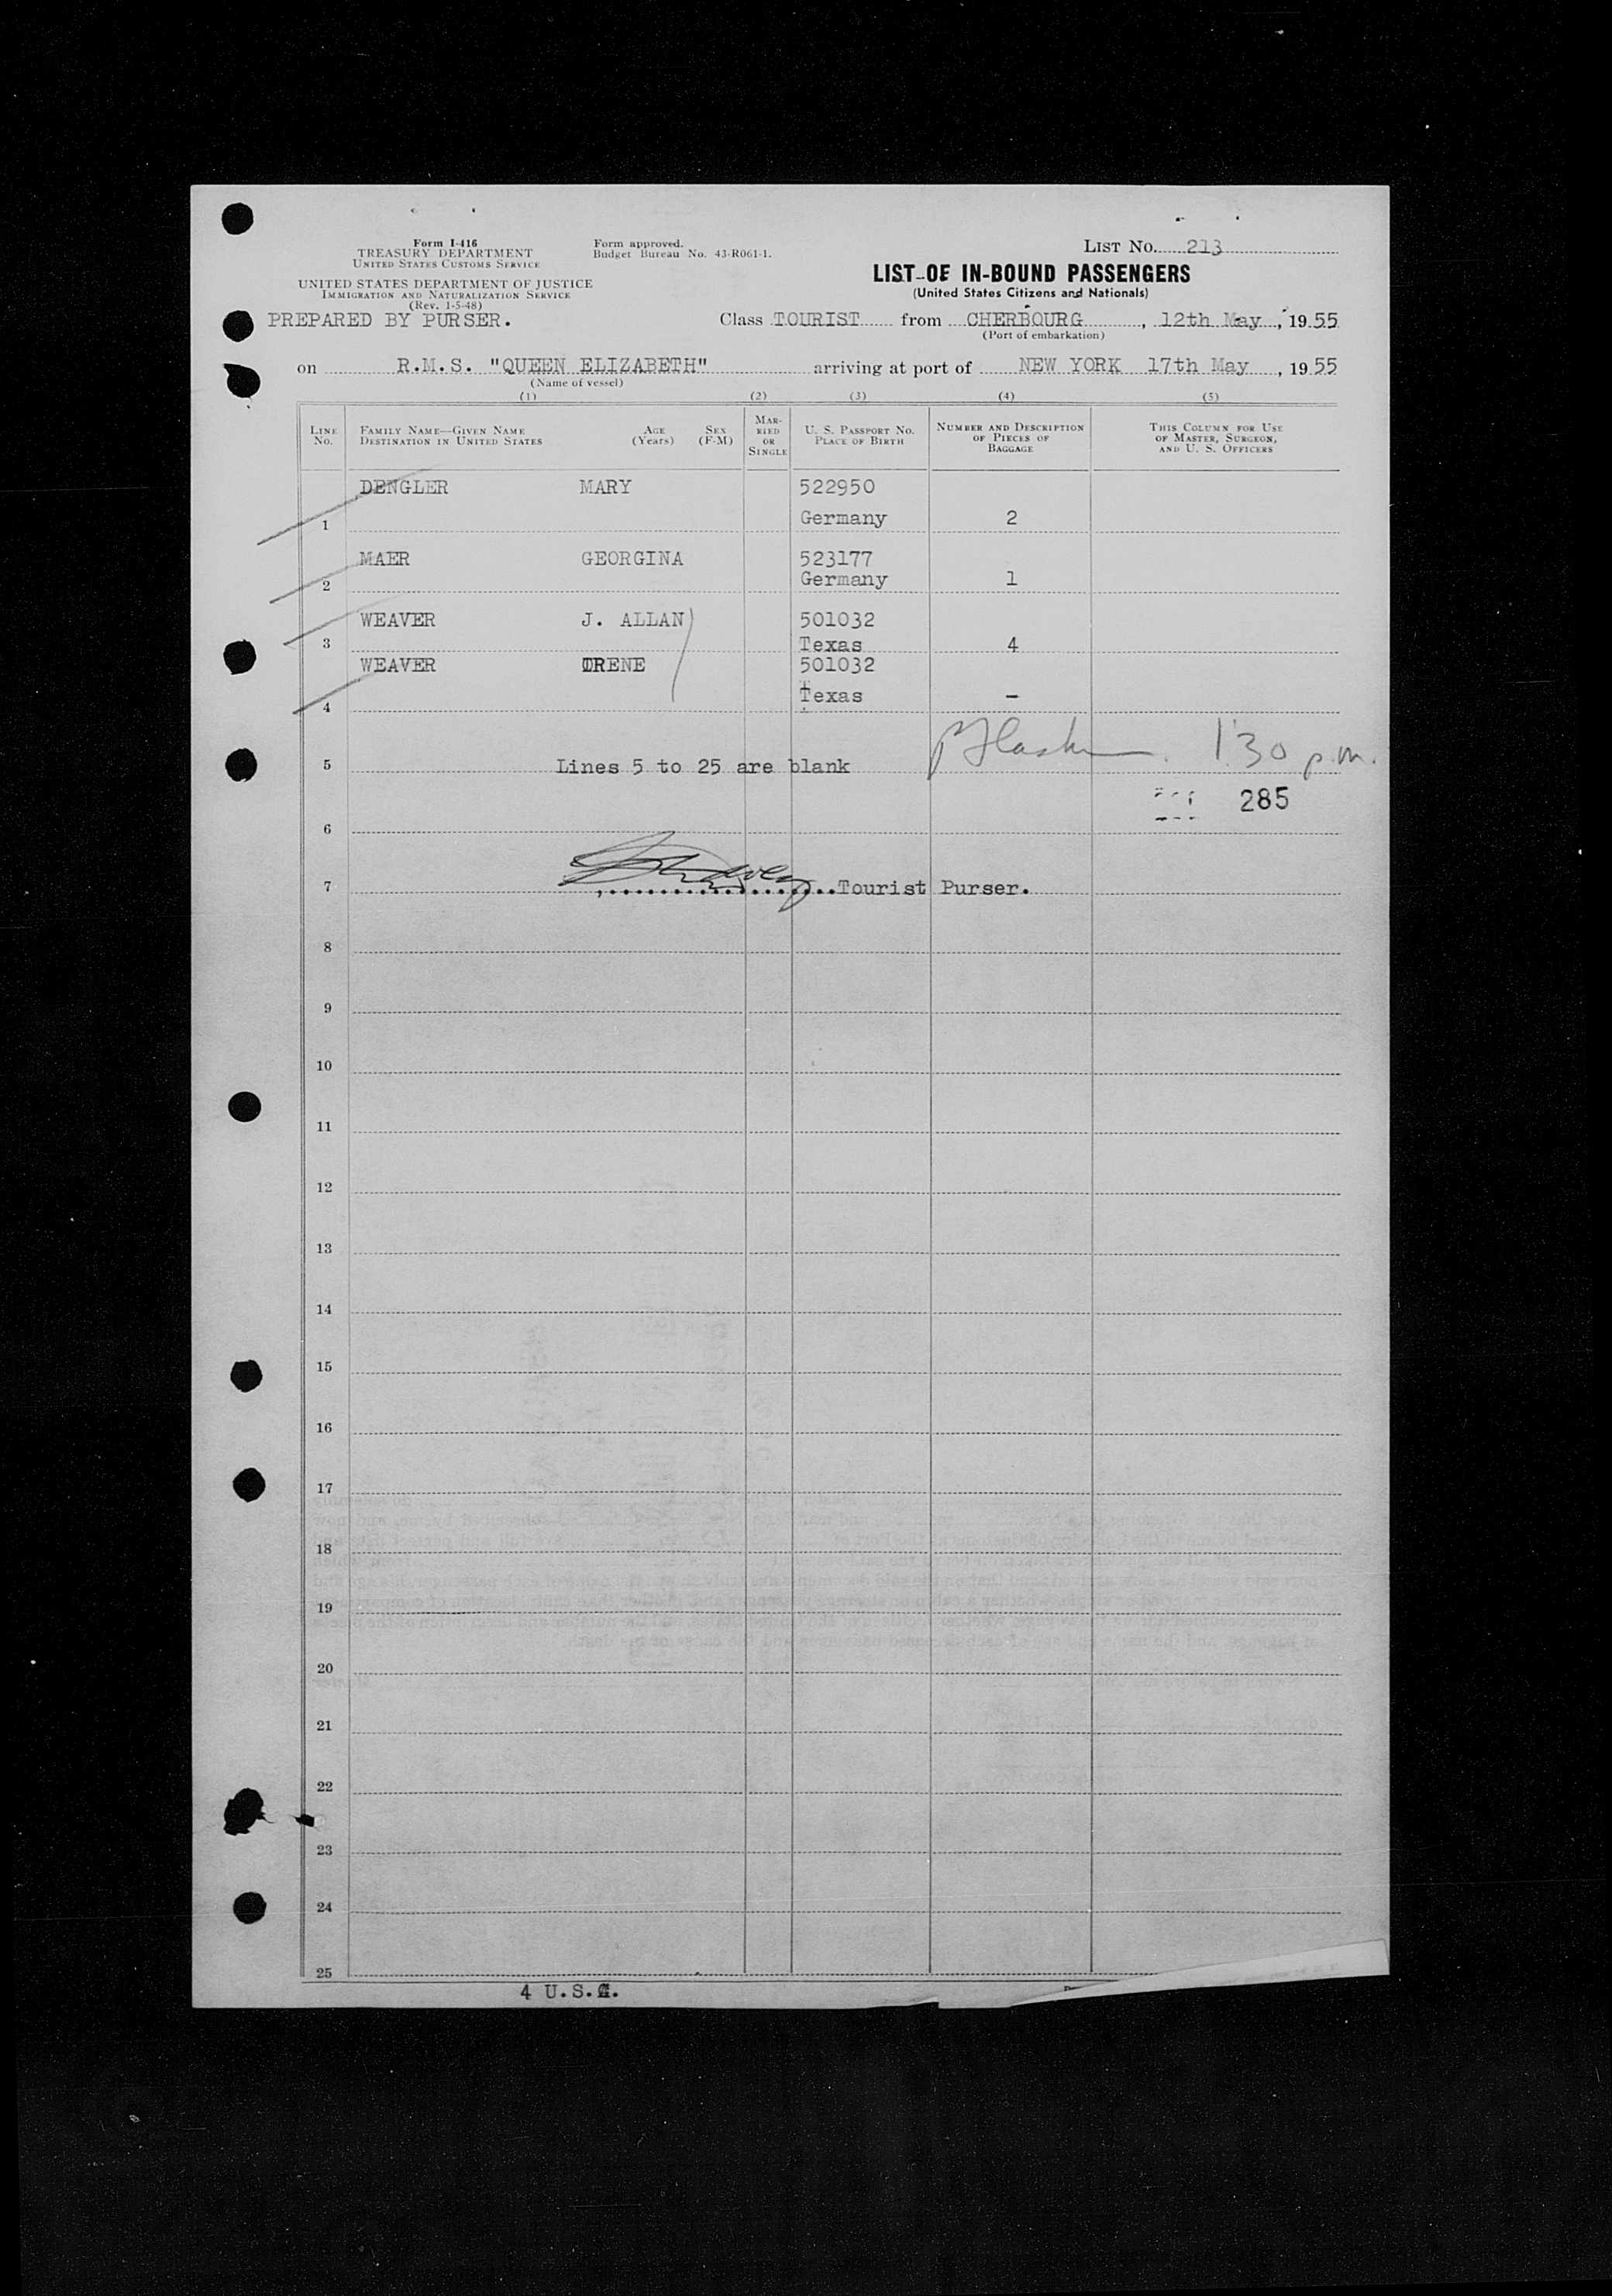 Form I-416
TREASURY DEPARTMENT
UNITED STATES CUSTOMS SERVICE
UNITED STATES DEPARTMENT OF JUSTICE
IMMIGRATION AND NATURALIZATION SERVICE
(Rev. 1-5-48)
PREPARED BY PURSER.
Form approved.
Budget Bureau No. 43-R061-1.
LIST No. 213
LIST OF IN-BOUND PASSENGERS
(United States Citizens and Nationals)
Class TOURIST from CHERBOURG, 12th May, 1955
(Port of embarkation)
on R.M.S. "QUEEN ELIZABETH" arriving at port of NEW YORK 17th May, 1955
(Name of vessel)
(1) (2) (3) (4) (5)
LINE No.
FAMILY NAME—GIVEN NAME
DESTINATION IN UNITED STATES
AGE (Years)
SEX (F-M)
MAR-RIED OR SINGLE
U. S. PASSPORT No.
PLACE OF BIRTH
NUMBER AND DESCRIPTION OF PIECES OF BAGGAGE
THIS COLUMN FOR USE OF MASTER, SURGEON, AND U. S. OFFICERS
DENGLER MARY 522950
1 Germany 2
MAER GEORGINA 523177
2 Germany 1
WEAVER J. ALLAN 501032
3 Texas 4
WEAVER IRENE 501032
4 Texas –
1:30 p.m.
5 Lines 5 to 25 are blank
285
6
7 Tourist Purser.
8
9
10
11
12
13
14
15
16
17
18
19
20
21
22
23
24
25
4 U.S.C.